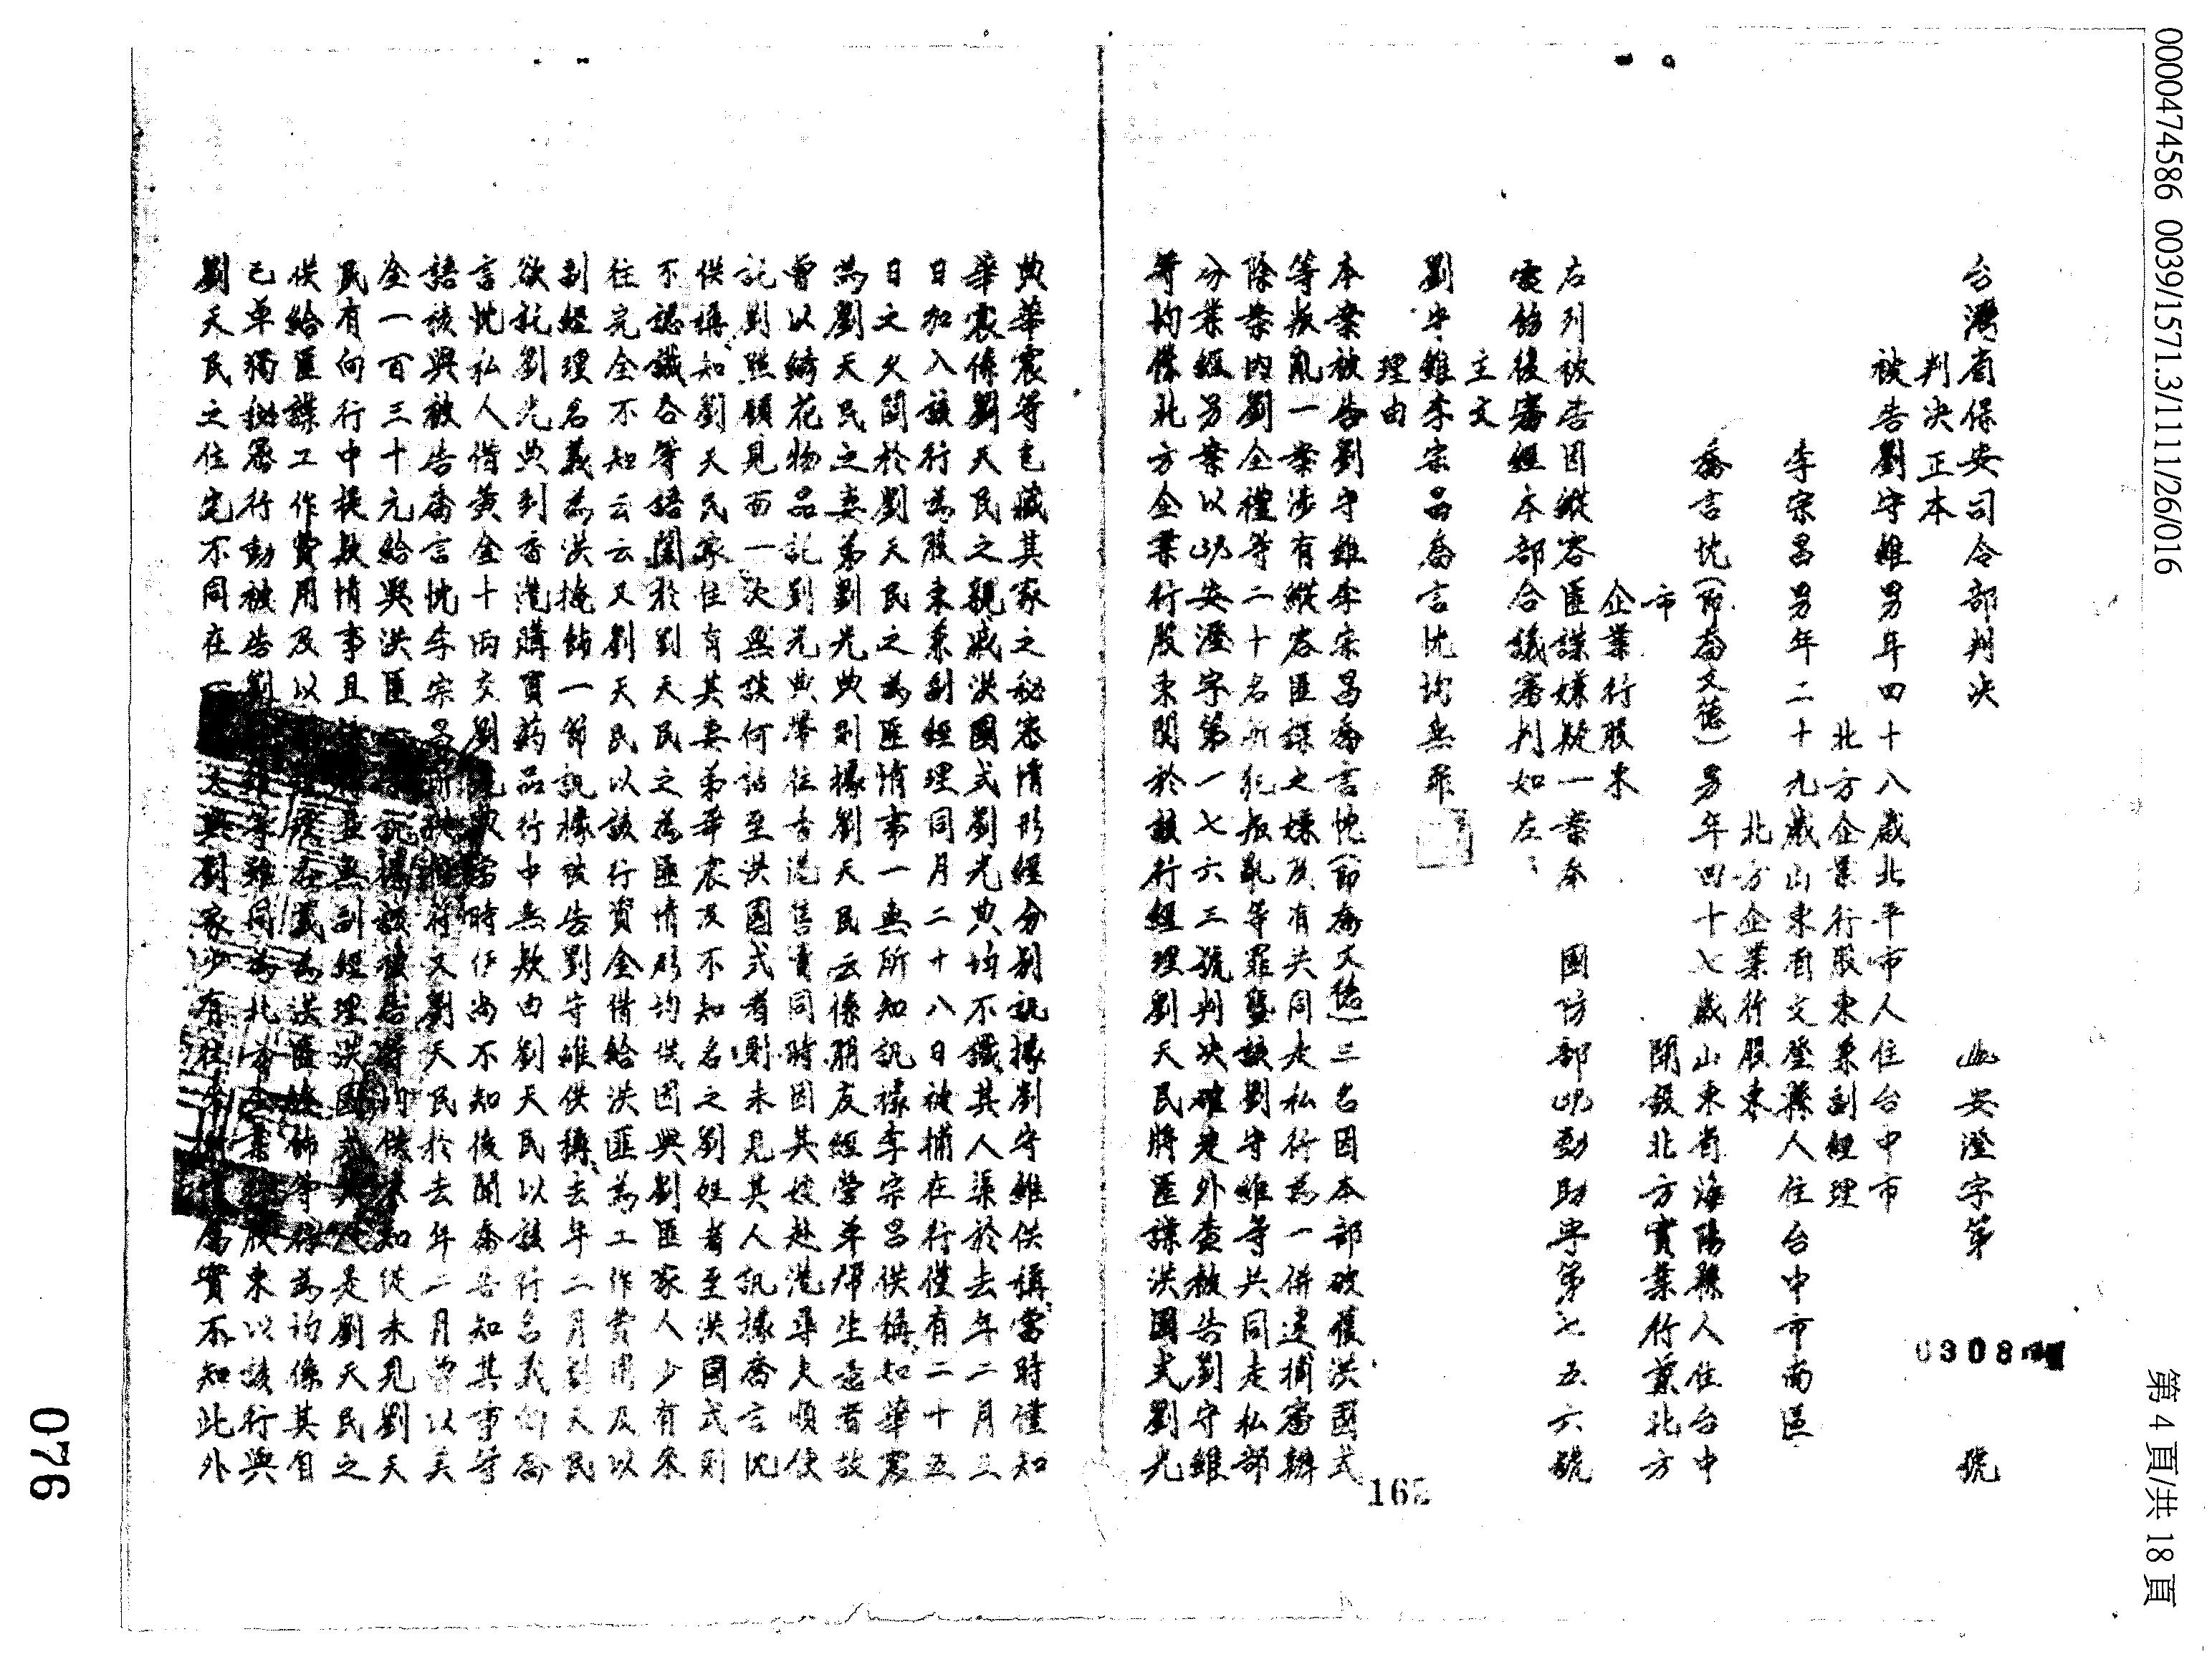 0000474586 0039/1571.3/1111/26/016
第 4 頁/共 18 頁
台灣省保安司令部判決 安澄字第 號
0308
判决正本
被告劉守維男年四十八歲北平市人住台中市
北方企業行股東兼副經理
李宗昌男年二十九歲山東省文登縣人住台中市南區
北方企業行股東
喬言忱(即喬文德)男年四十七歲山東省海陽縣人住台中
市 開設北方實業行兼北方
企業行股東
右列被告因縱容匪諜嫌疑一案奉 國防部 勁助字第七五六號
電飭後審經本部合議審判如左
主文
劉守維李宗昌喬言忱均無罪
理由
本案被告劉守維李宗昌喬言忱(即喬文德)三名因本部破獲洪國式
等叛亂一案涉有縱容匪諜之嫌及有共同走私行為一併逮捕審辦
除案內劉全禮等二十名所犯叛亂等罪暨該劉守維等共同走私部
分業經另案以 安澄字第一七六三號判决確定外查被告劉守維
等均係北方企業行股東關於該行經理劉天民將匪諜洪國式劉光
典華震等包藏其家之秘密情形經分別訊據劉守維供稱當時僅知
華震係劉天民之親戚洪國式劉光典均不識其人渠於去年二月三
日加入該行為股東兼副經理同月二十八日被捕在行僅有二十五
日之久關於劉天民之為匪情事一無所知訊據李宗昌供稱知華震
為劉天民之妻弟劉光典則據劉天民云係朋友經營單幫生意者故
曾以綉花物品託劉光典帶往香港售賣同時因其嫂赴港尋夫順便
託劉照顧見面一次無談何話至洪國式者則未見其人訊據喬言忱
供稱知劉天民家住有其妻弟華震及不知名之劉姓者至洪國式則
不認識合等語關於劉天民之為匪情形均供因與劉匪家人少有來
往完全不知云云又劉天民以該行資金借給洪匪為工作費用及以
副經理名義為洪掩飾一節訊據被告劉守維供稱去年二月劉天民
欲託劉光典到香港購買葯品行中無款由劉天民以該行名義向喬
言忱私人借黃金十両交劉光典當時伊尚不知後聞喬告知其事等
語核與被告喬言忱李宗昌所供相符又劉天民於去年二月曾以美
金一百三十元給與洪匪 訊據該被告等均供未知從未見劉天
民有向行中提款情事且 並無副經理洪國式其人是劉天民之
供給匪諜工作費用及以 名義為洪匪掩飾等 為均係其自
己單獨秘密行動被告劉 等雖同為北方企業行股東以該行與
劉天民之住宅不同在一 劉家少有往來 屬實不知此外
162
076